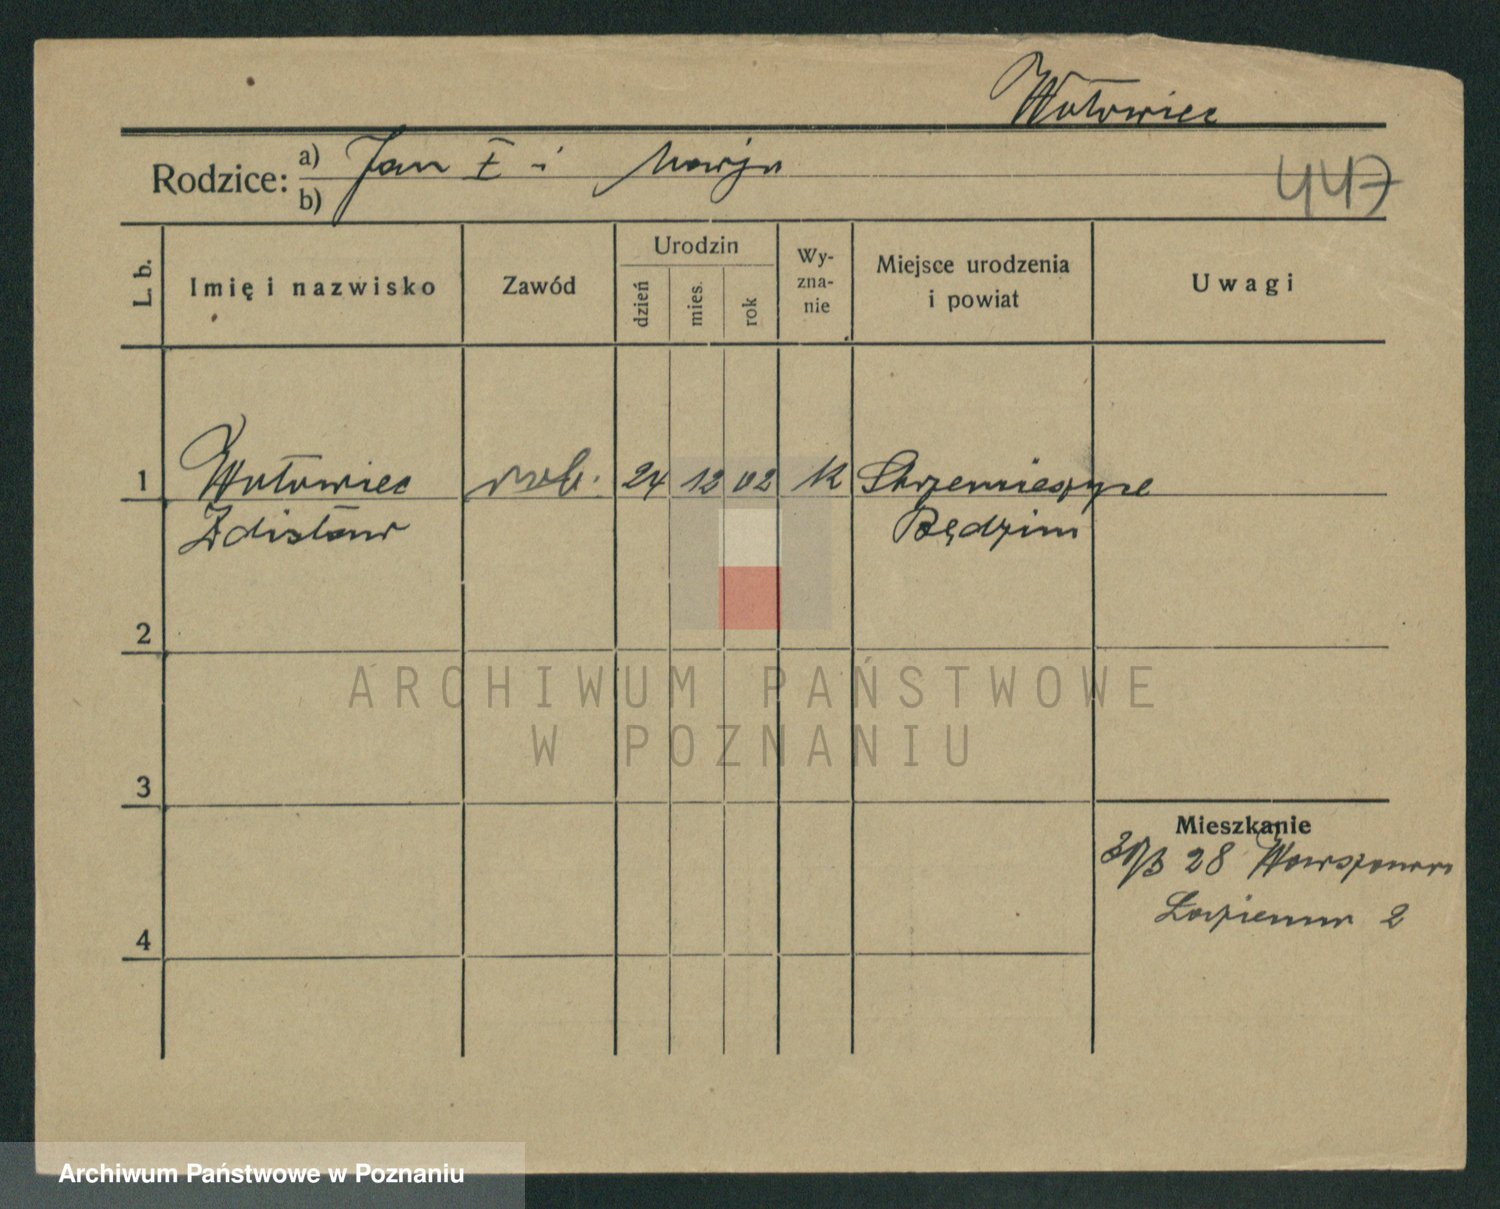 Wołowiec
Rodzice: a) Jan I i Marja
b)
447
L. b.
Imię i nazwisko
Zawód
Urodzin
dzień
mies.
rok
Wy-
zna-
nie
Miejsce urodzenia
i powiat
Uwagi
1 Wołowiec rob. 24 12 02 k Strzemieszyce
Zdisław Będzin
2
3
4
Mieszkanie
28 Warszawa
Łazienna 2
ARCHIWUM PAŃSTWOWE
W POZNANIU
Archiwum Państwowe w Poznaniu